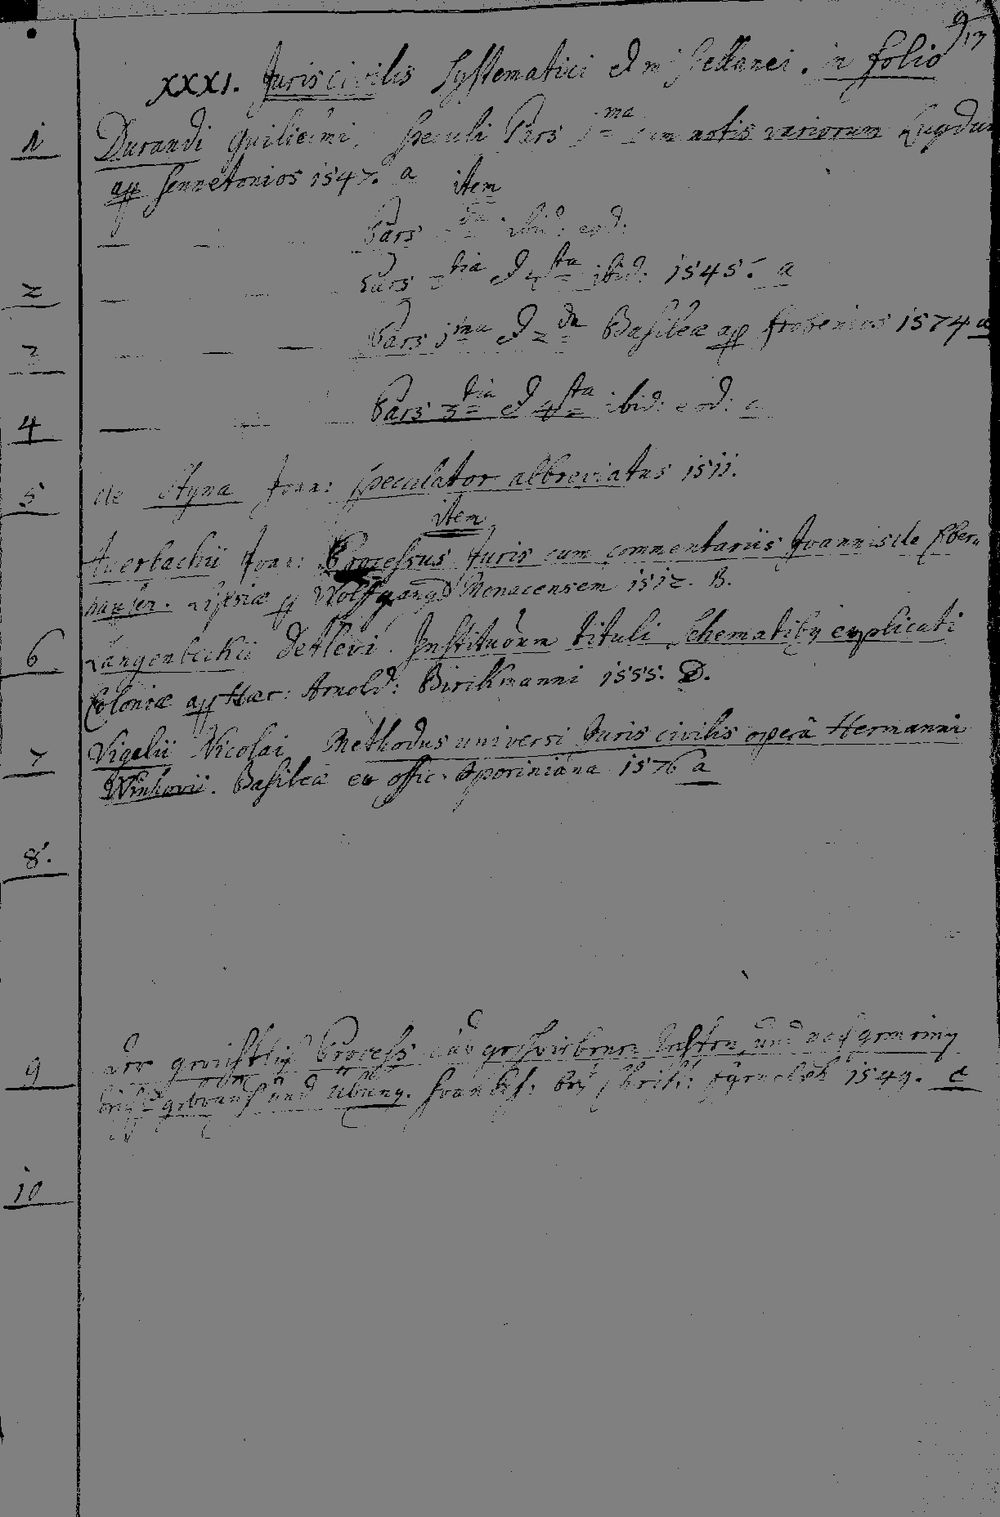 913
XXXI. Juris civilis Systematici et miscellanei. in folio
1 Durandi Guilielmi, Speculi Pars 1ma cum notis variorum Lugdun
ap Sennetonios 1547. a item
Pars ibid: eod:
2 Pars tia et 4ta ibid: 1545. a
3 Pars 1ma et 2da Basileæ ap Frobenios 1574 a
4 Pars 3tia et 4ta ibid: eod: a
5 de Stÿna Joan: Speculator abbreviatus 1511.
item
Auerbachii Joan: Processus Juris cum commentariis Joannis de Eber
hausen. Lipsiæ p Wolfgangū Monacensem 1512. B.
6 Langenbeckii Detlevi. Institutionum tituli Schematibq explicati
Coloniæ ap Hær: Arnold: Birckmanni 1555. D.
7 Vigelii Nicolai Methodus universi Juris civilis operâ Hermanni
Winhovii. Basileæ ex offic. Oporiniana 1576 a
8.
9 der gerichtlich Process aus geschribenen Rechten, und nach gemeinem
gebrauch und übung. Franckf: beÿ Christ: Egenolph 1549. c
10